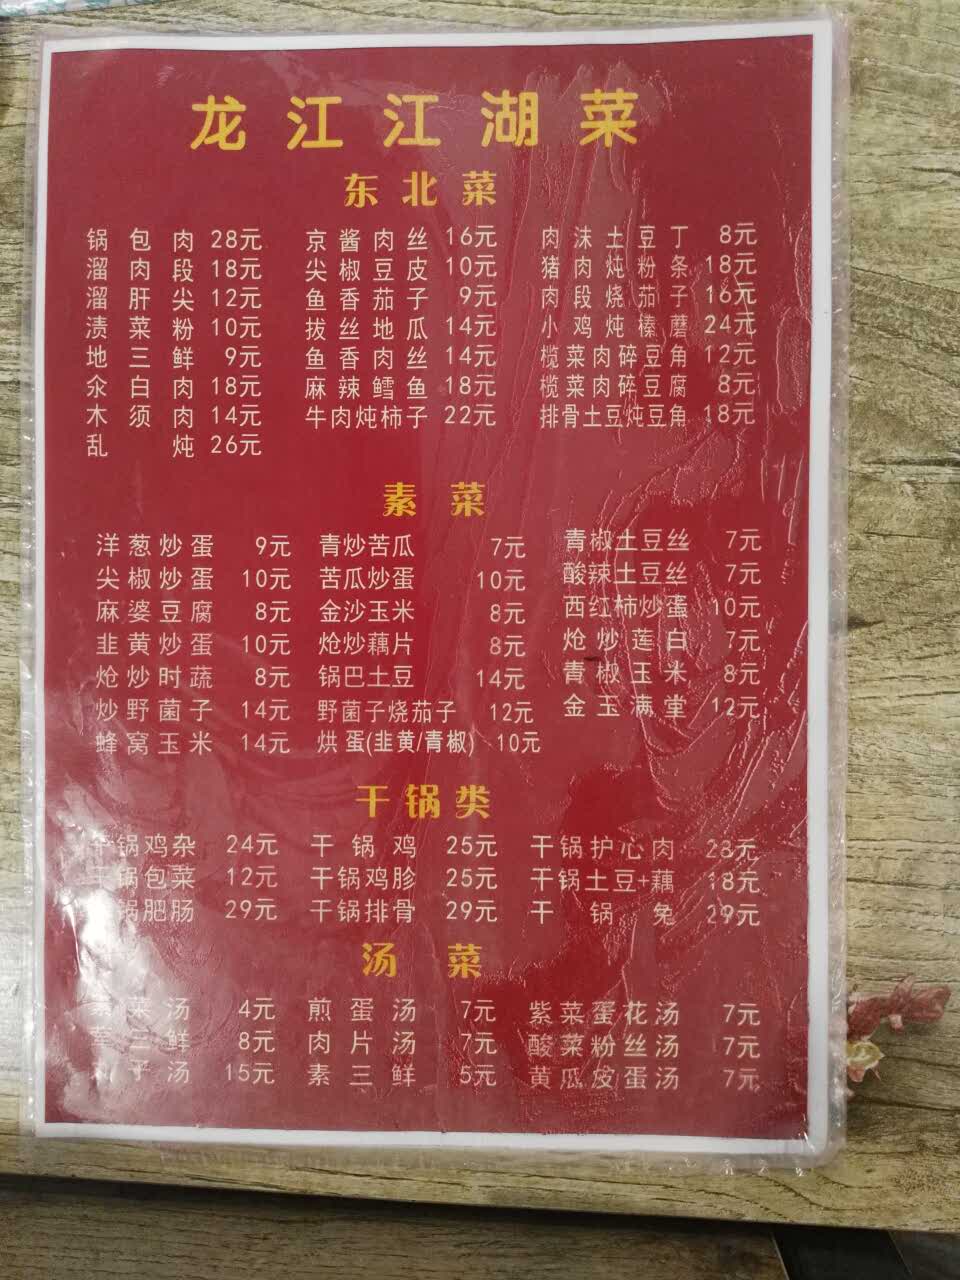 龙江江湖菜
东北菜
锅包肉 28元 京酱肉丝 16元 肉沫土豆丁 8元
溜肉段 18元 尖椒豆皮 10元 猪肉炖粉条 18元
溜肝尖 12元 鱼香茄子 9元 肉段烧茄子 16元
渍菜粉 10元 拔丝地瓜 14元 小鸡炖榛蘑 24元
地三鲜 9元 鱼香肉丝 14元 榄菜肉碎豆角 12元
汆白肉 18元 麻辣鳕鱼 18元 榄菜肉碎豆腐 8元
木须肉 14元 牛肉炖柿子 22元 排骨土豆炖豆角 18元
乱炖 26元
素菜
洋葱炒蛋 9元 青炒苦瓜 7元 青椒土豆丝 7元
尖椒炒蛋 10元 苦瓜炒蛋 10元 酸辣土豆丝 7元
麻婆豆腐 8元 金沙玉米 8元 西红柿炒蛋 10元
韭黄炒蛋 10元 炝炒藕片 8元 炝炒莲白 7元
炝炒时蔬 8元 锅巴土豆 14元 青椒玉米 8元
炒野菌子 14元 野菌子烧茄子 12元 金玉满堂 12元
蜂窝玉米 14元 烘蛋(韭黄/青椒) 10元
干锅类
干锅鸡杂 24元 干锅鸡 25元 干锅护心肉 28元
干锅包菜 12元 干锅鸡胗 25元 干锅土豆+藕 18元
锅肥肠 29元 干锅排骨 29元 干锅兔 29元
汤菜
菜汤 4元 煎蛋汤 7元 紫菜蛋花汤 7元
三鲜 8元 肉片汤 7元 酸菜粉丝汤 7元
子汤 15元 素三鲜 5元 黄瓜皮蛋汤 7元